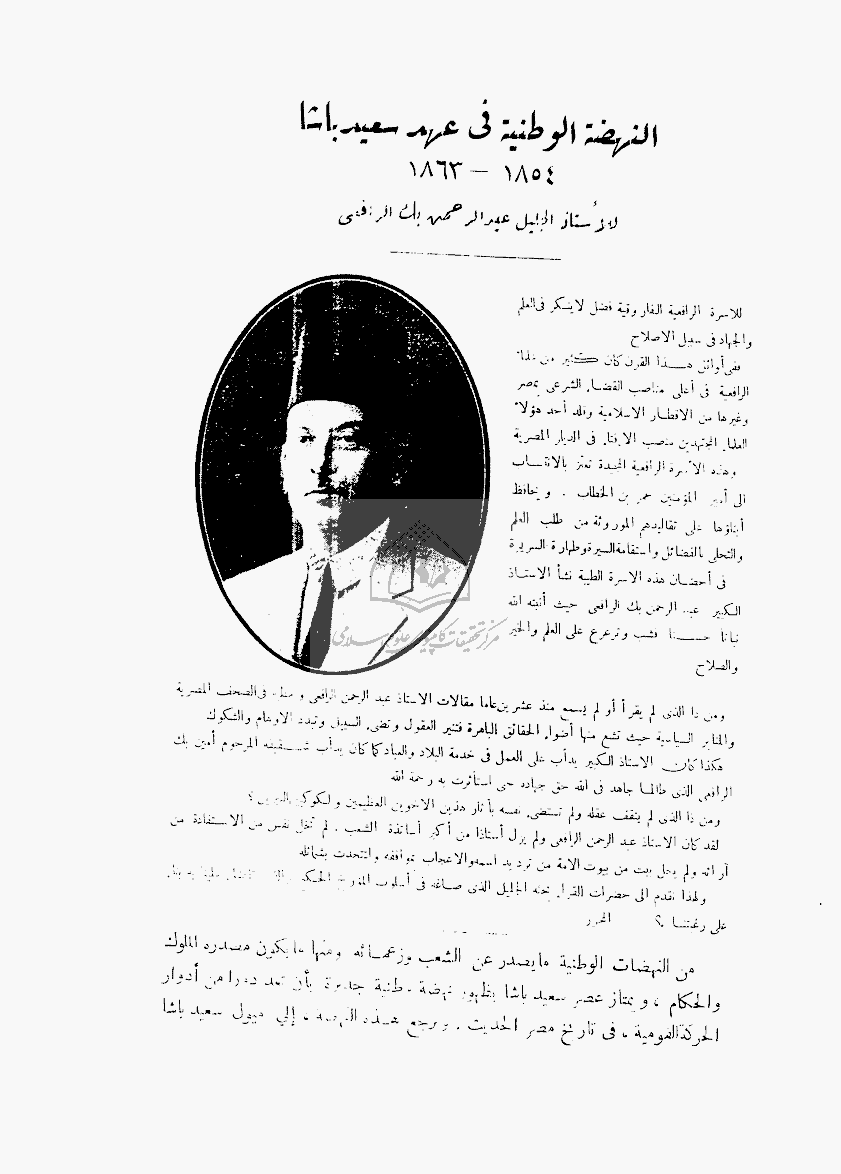 النهضة الوطنية فى عهد سعيد باشا
١٨٥٤ — ١٨٦٣
للأستاذ الجليل عبد الرحمن بك الرافعى
للاسرة الرافعية الفاروقية فضل لا ينكر فى العلم
والجهاد فى سبيل الاصلاح
ففى أوائل هذا القرن كان كثير من
الرافعية فى أعلى مناصب القضاء الشرعى بمصر
وغيرها من الاقطار الاسلامية وقلد أحد هؤلاء
العلماء المجتهدين منصب الافتاء فى الديار المصرية
وهذه الأسرة الرافعية المجيدة تعتز بالانتساب
الى أمير المؤمنين عمر بن الخطاب . ويحافظ
أبناؤها على تقاليدهم الموروثة من طلب العلم
والتحلى بالفضائل واستقامة السيرة وطهارة السريرة
فى أحضان هذه الاسرة الطيبة نشأ الاستاذ
الكبير عبد الرحمن بك الرافعى حيث أنبته الله
نباتا حسنا فشب وترعرع على العلم والخير
والصلاح
مركز تحقيقات كامپيوترى علوم اسلامى
ومن ذا الذى لم يقرأ أو لم يسمع منذ عشرين عاما مقالات الاستاذ عبد الرحمن الرافعى فى الصحف المصرية
والمنابر السياسية حيث تشع منها أضواء الحقائق الباهرة فتنير العقول وتضىء السبيل وتبدد الاوهام والشكوك
هكذا كان الاستاذ الكبير يدأب على العمل فى خدمة البلاد والعباد كما كان يدأب شقيقه المرحوم أمين بك
الرافعى الذى طالما جاهد فى الله حق جهاده حتى استأثرت به رحمة الله
ومن ذا الذى لم يثقف عقله ولم تستضىء نفسه بآثار هذين الاخوين العظيمين والكوكبين النيرين ؟
لقد كان الاستاذ عبد الرحمن الرافعى ولم يزل أستاذا من أكبر أساتذة الشعب . لم تخل نفس من الاستفادة من
آرائه ولم يخل بيت من بيوت الامة من ترديد اسمه والاعجاب بمواقفه والتحدث بشمائله
ولهذا نقدم الى حضرات القراء بحثه الجليل الذى صاغه فى أسلوب المؤرخ الحكيم
على رغبتنا ؟ المحرر
من النهضات الوطنية ما يصدر عن الشعب وزعمائه ومنها ما يكون مصدره الملوك
والحكام ، ويمتاز عصر سعيد باشا بظهور نهضة وطنية جديرة بأن تعد دورا من أدوار
الحركة القومية ، فى تاريخ مصر الحديث . وترجع هذه النهضة ، إلى ميول سعيد باشا